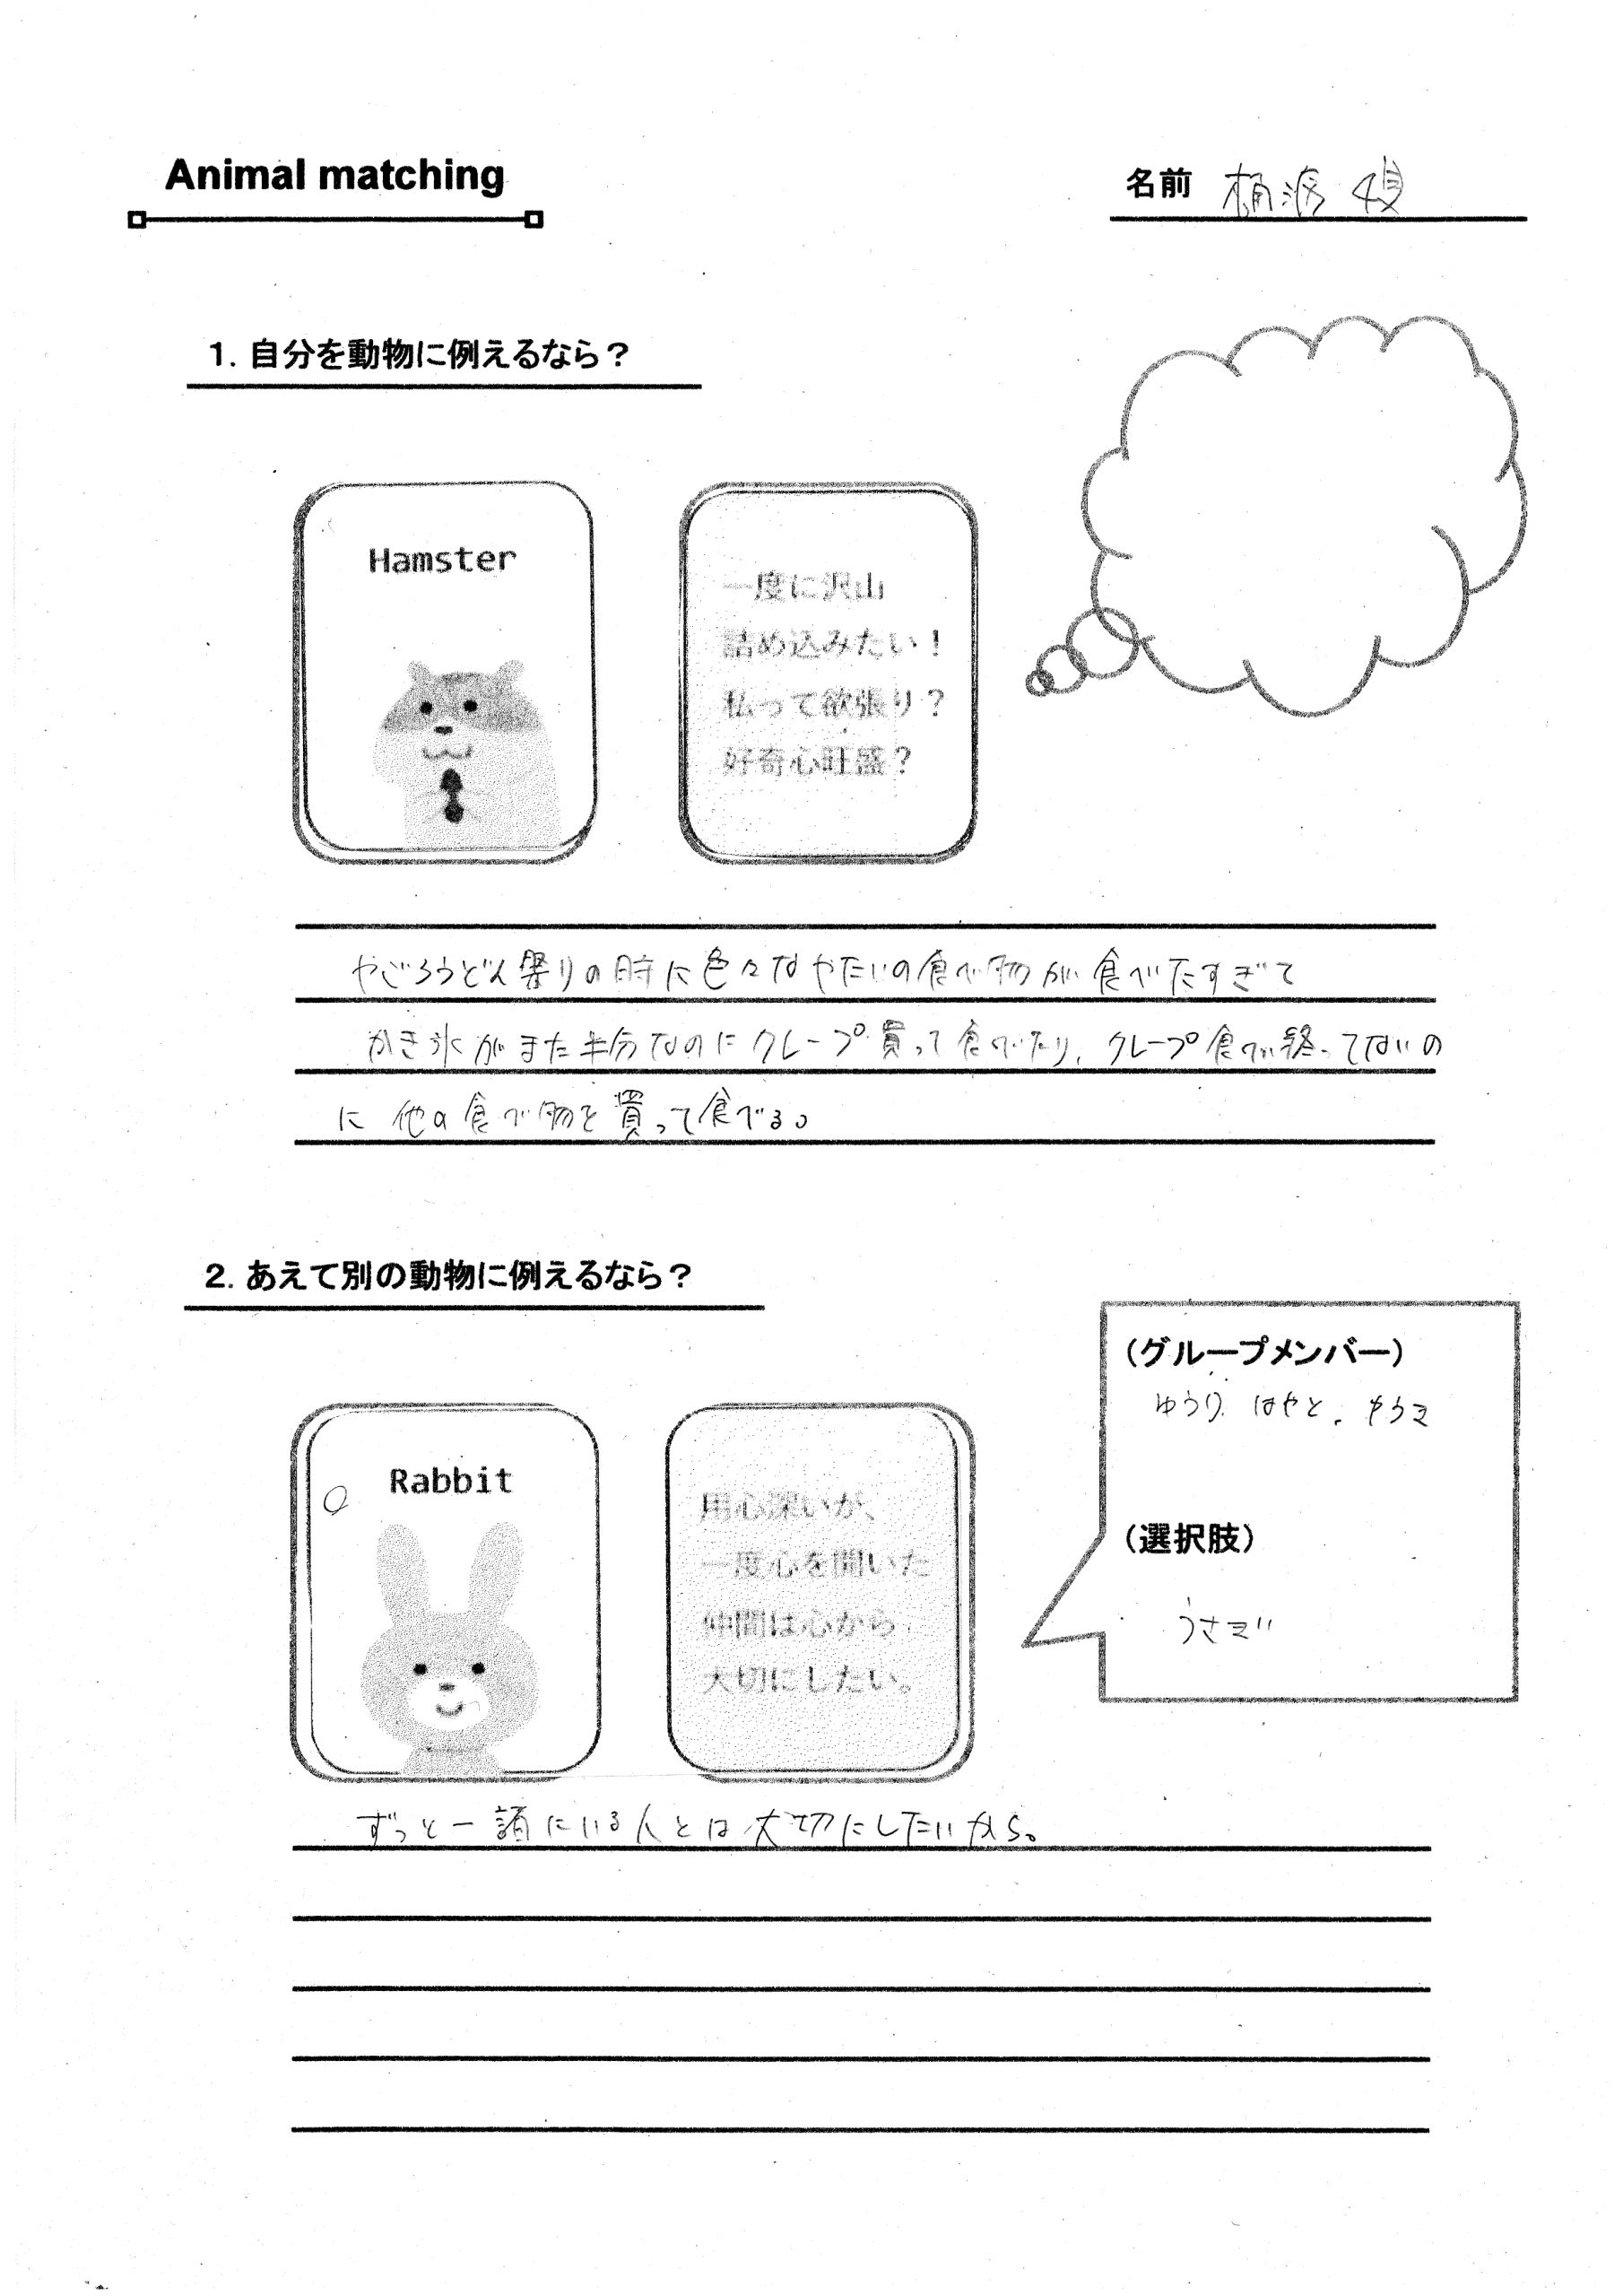 Animal matching
名前
1. 自分を動物に例えるなら？
Hamster
一度に沢山
詰め込みたい！
私って欲張り？
好奇心旺盛？
やごろうどん祭りの時に色々なやたいの食べ物が食べたすぎて
かき氷がまた半分なのにクレープ買って食べたり、クレープ食べ終ってないの
に他の食べ物を買って食べる。
2. あえて別の動物に例えるなら？
（グループメンバー）
ゆうり はやと.
Rabbit
用心深いが、
一度心を開いた
仲間は心から
大切にしたい。
（選択肢）
うさぎ
ずっと一諸にいる人とは大切にしたいから。